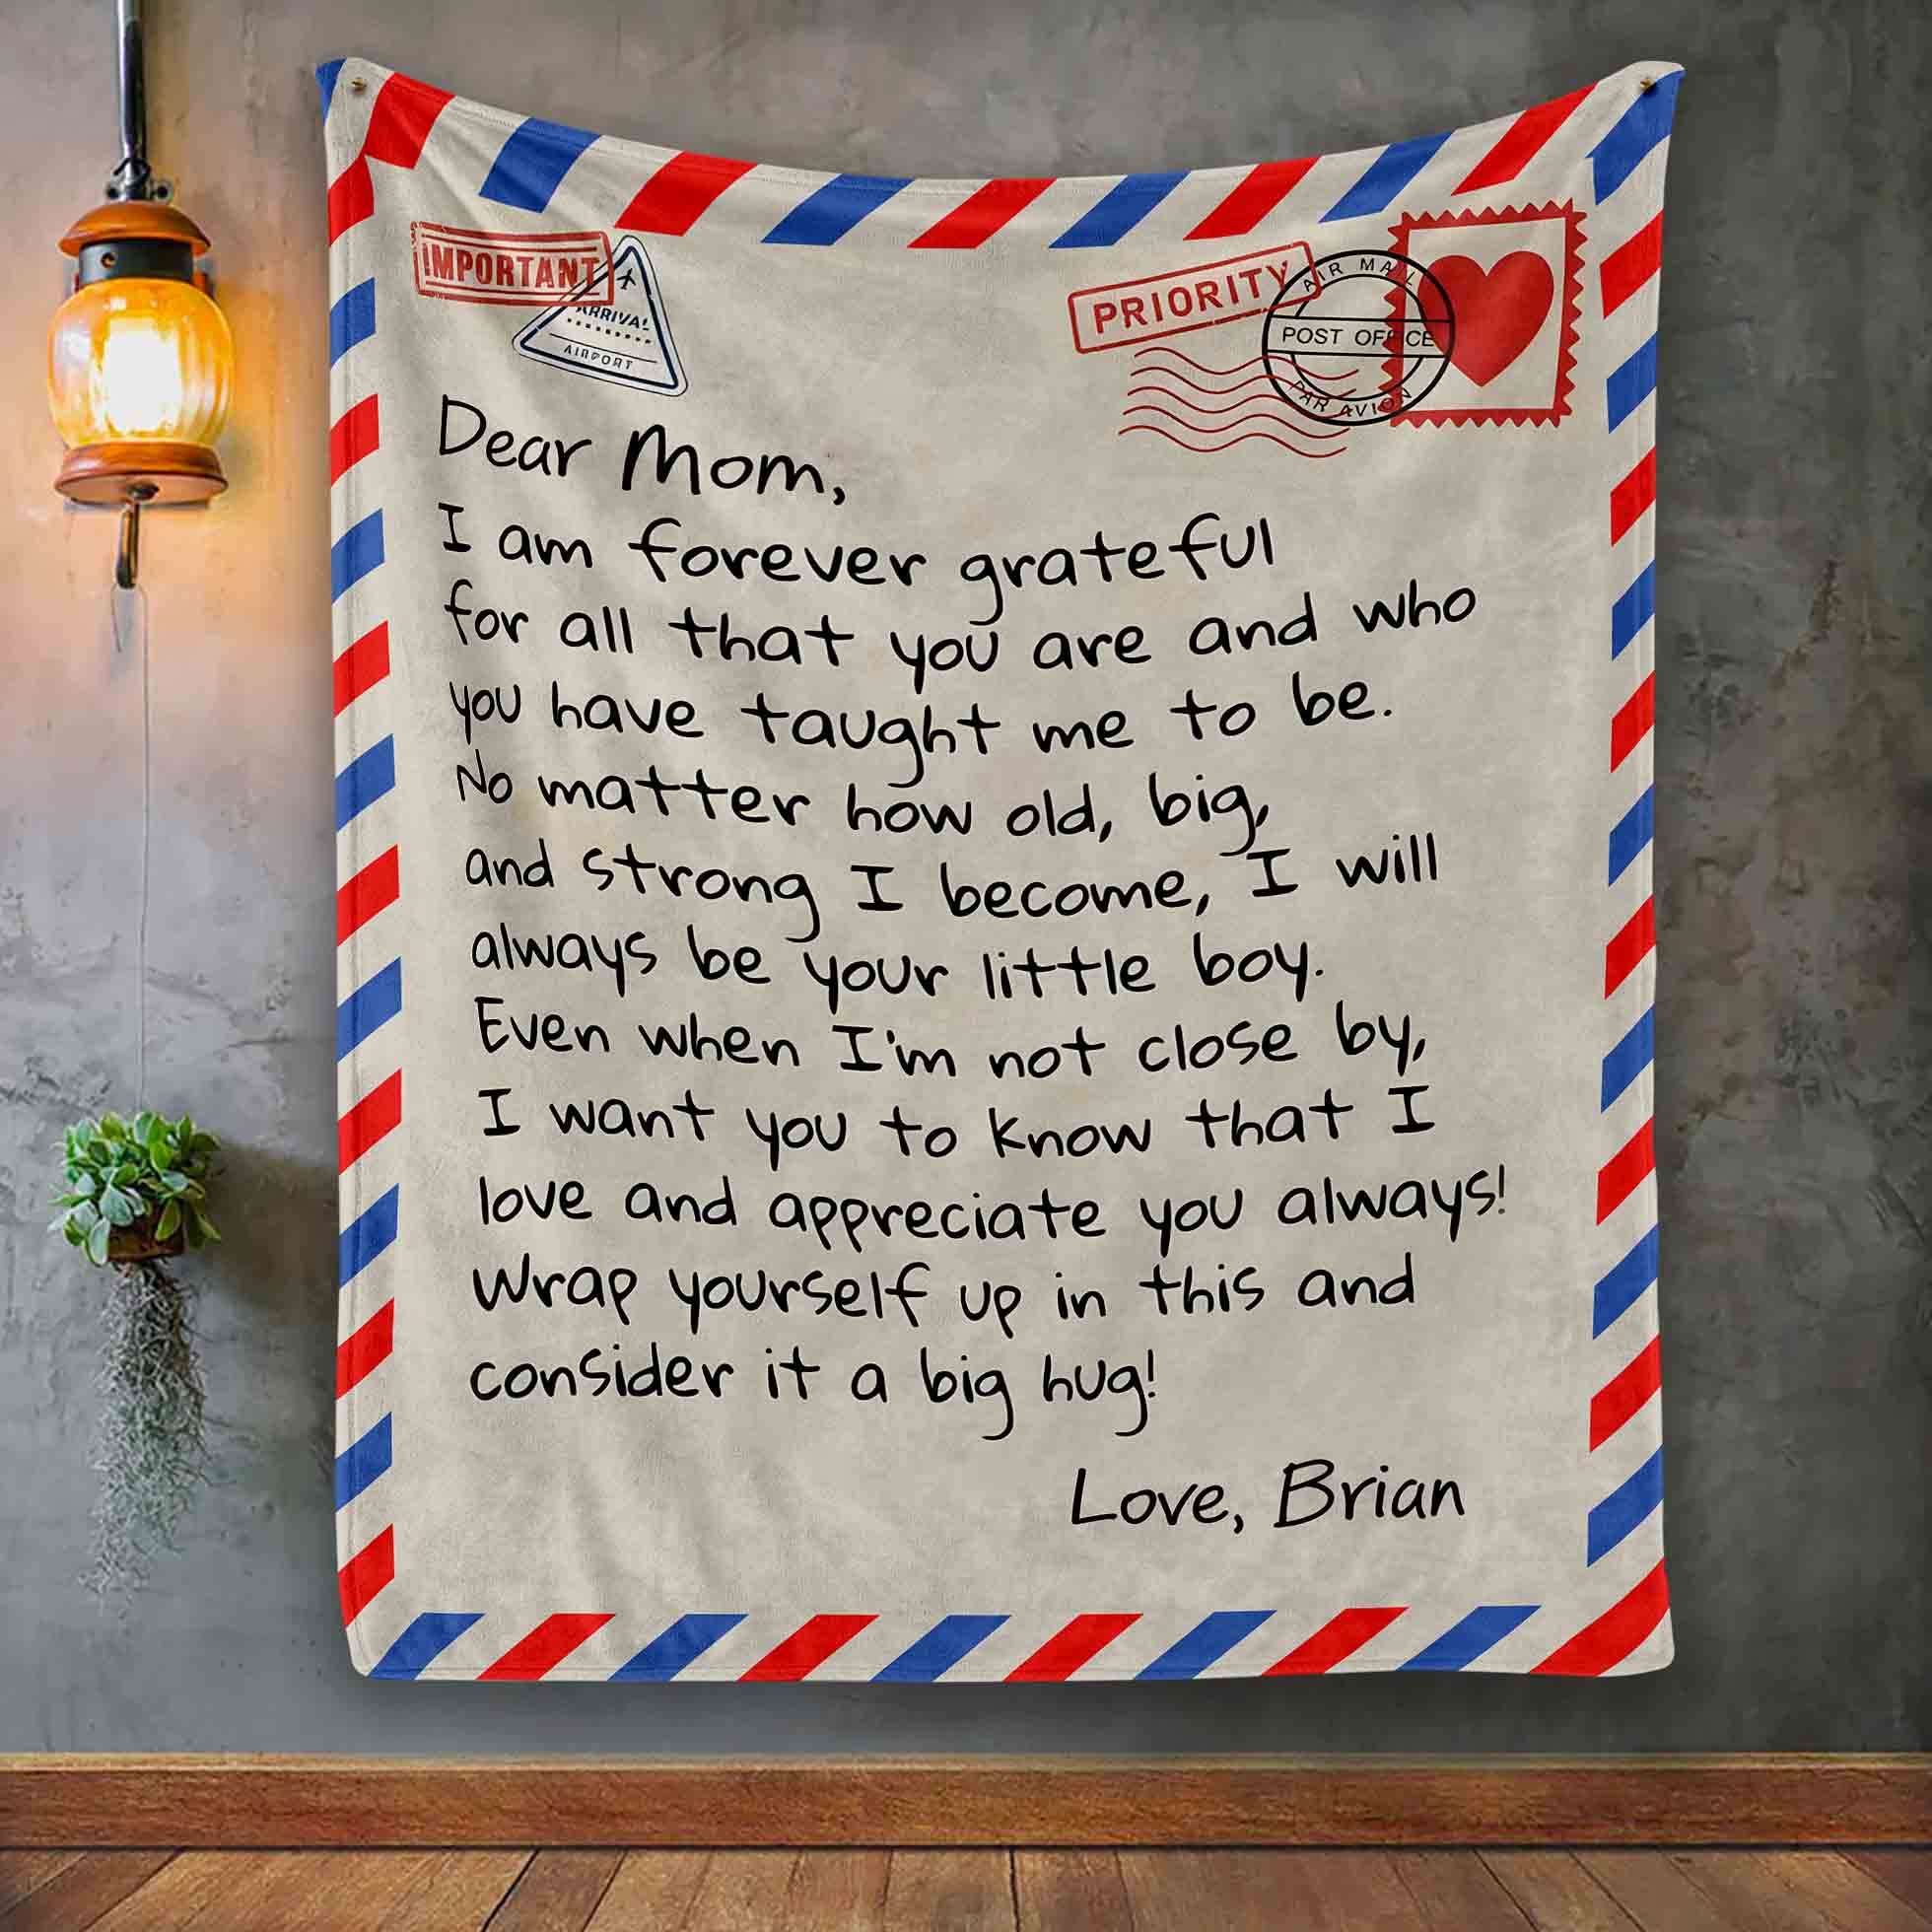 IMPORTANT
ARRIVAL
AIRPORT
PRIORITY
AIR MAIL
POST OFFICE
PAR AVION
Dear Mom,
I am forever grateful
for all that you are and who
you have taught me to be.
No matter how old, big,
and strong I become, I will
always be your little boy.
Even when I'm not close by,
I want you to know that I
love and appreciate you always!
Wrap yourself up in this and
consider it a big hug!
Love, Brian